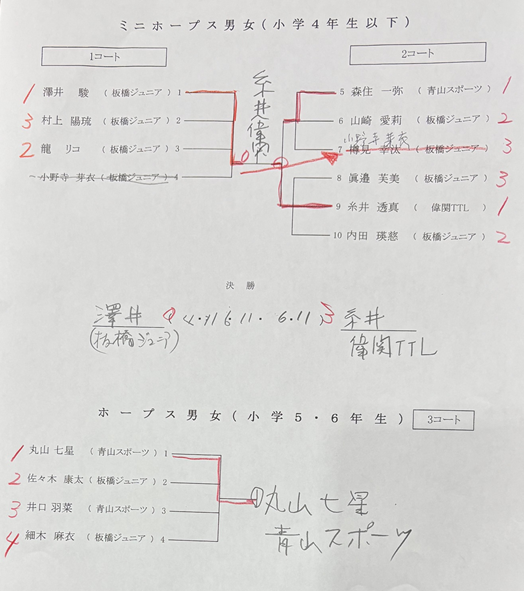 ミニホープス男女(小学4年生以下)
1コート
2コート
1 澤井 駿 (板橋ジュニア) 1
3 村上 陽琉 (板橋ジュニア) 2
2 龍 リコ (板橋ジュニア) 3
小野寺 芽衣 (板橋ジュニア) 4
糸井 偉関
5 森住 一弥 (青山スポーツ) 1
6 山﨑 愛莉 (板橋ジュニア) 2
小野寺芽衣
7 樽見 幸汰 (板橋ジュニア) 3
8 眞邉 芙美 (板橋ジュニア) 3
9 糸井 透真 (偉関TTL) 1
10 内田 瑛慈 (板橋ジュニア) 2
0
決勝
澤井 0 (4・11 6・11・6・11) 3 糸井
(板橋ジュニア)
偉関TTL
ホープス男女(小学5・6年生)
3コート
1 丸山 七星 (青山スポーツ) 1
2 佐々木 康太 (板橋ジュニア) 2
3 井口 羽菜 (青山スポーツ) 3
4 細木 麻衣 (板橋ジュニア) 4
① 丸山 七星
青山スポーツ